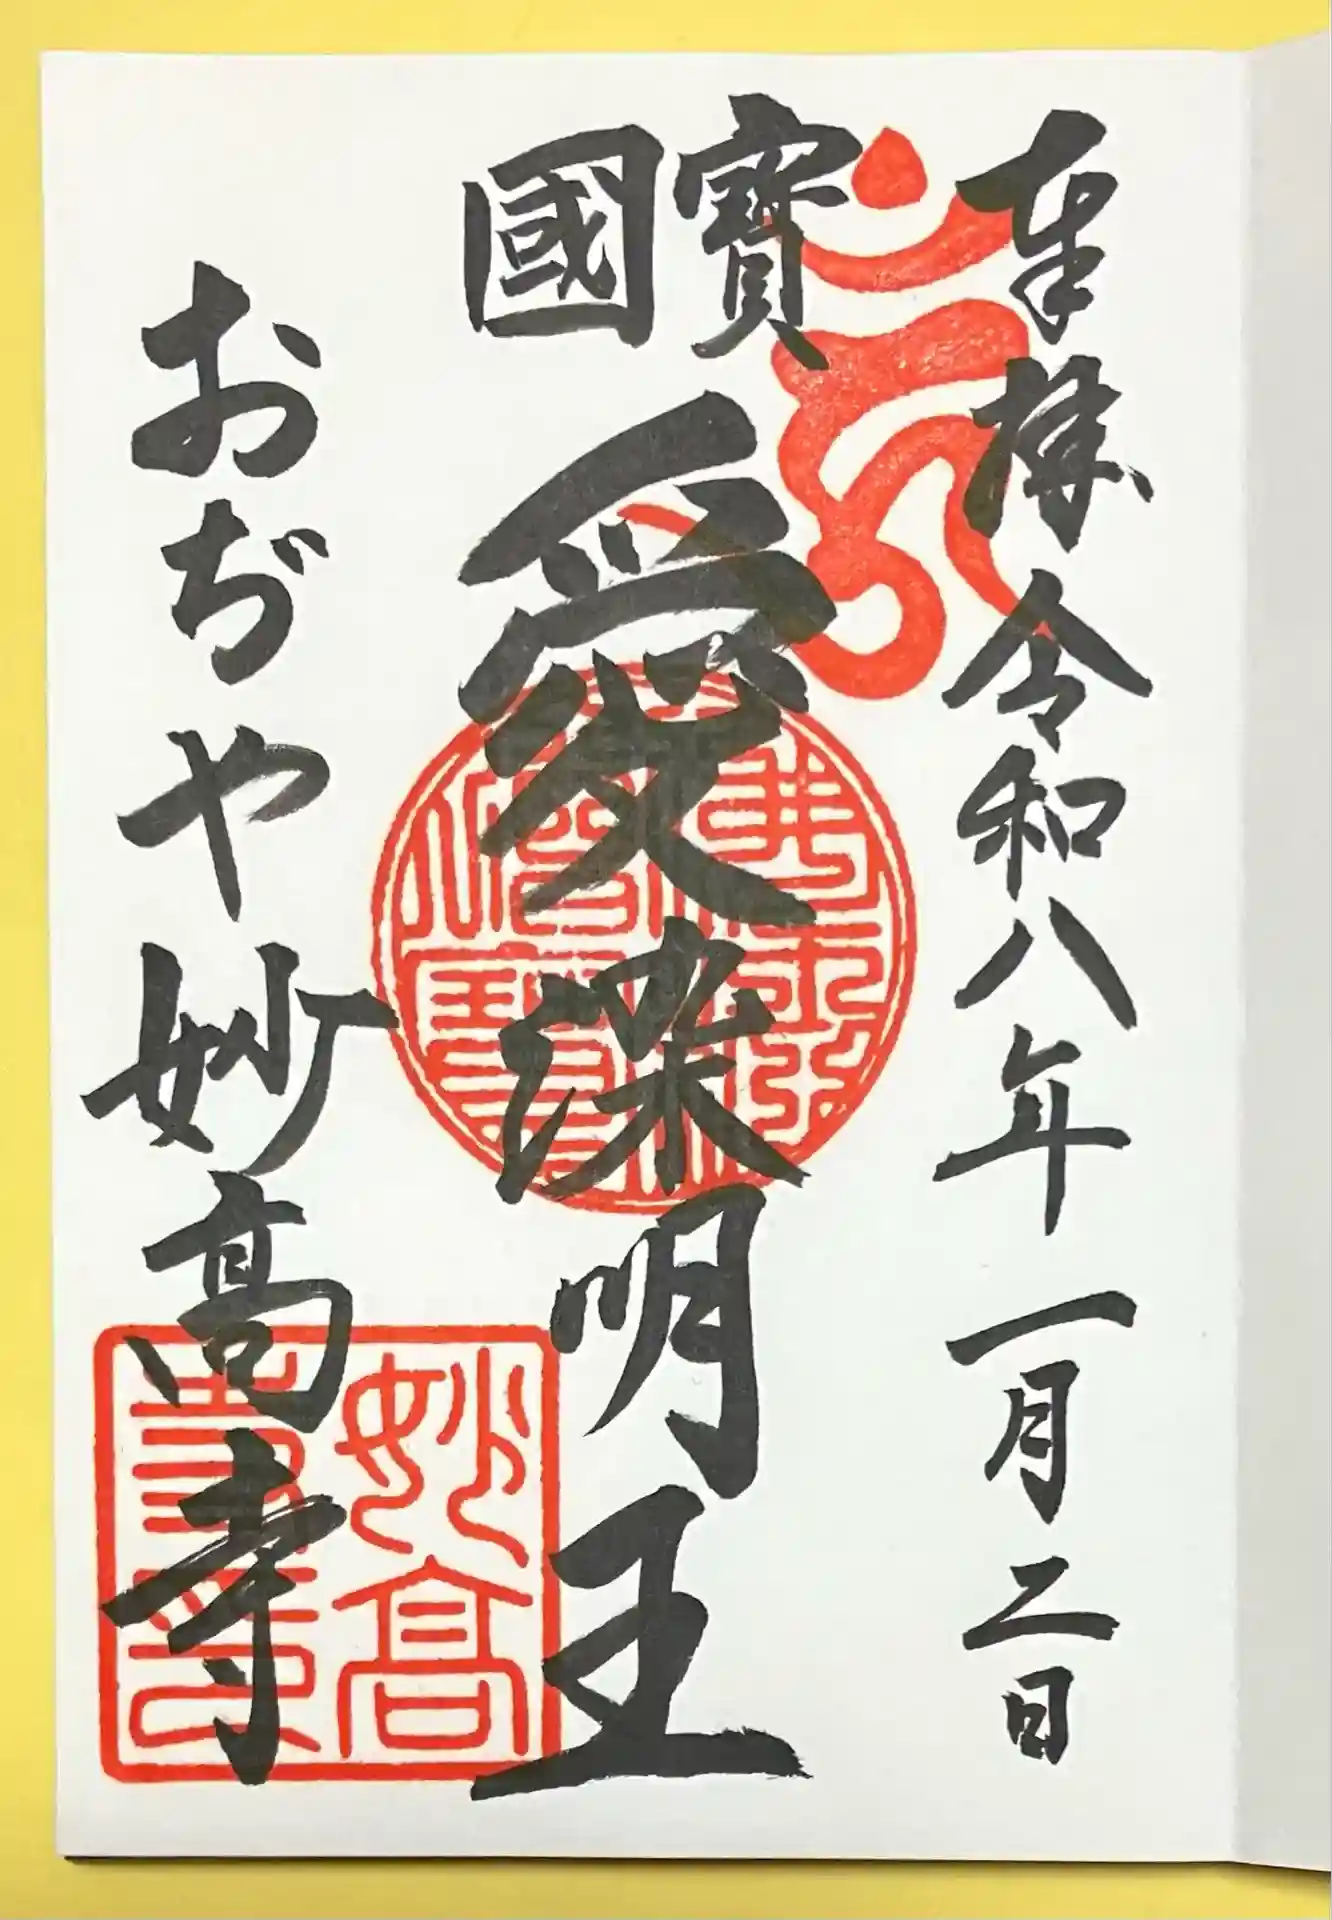 奉拝 令和八年一月二日
寳國
愛染明王
おぢや 妙高寺
妙高